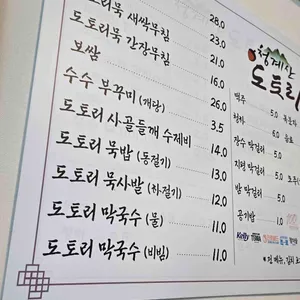 28.0
도토리묵 새싹무침 23.0
도토리묵 간장무침 21.0
보쌈 16.0
수수 부꾸미 (개당) 26.0
도토리 사골들깨 수제비 3.5
도토리 묵밥 (동절기) 14.0
도토리 묵사발 (하절기) 13.0
도토리 막국수 (물) 12.0
도토리 막국수 (비빔) 11.0
11.0
청계산
도토리
맥주 5.0
청하 6.0
장수 막걸리 5.0
지평 막걸리 5.0
밤 막걸리 5.0
공기밥 1.0
Kelly TERRA